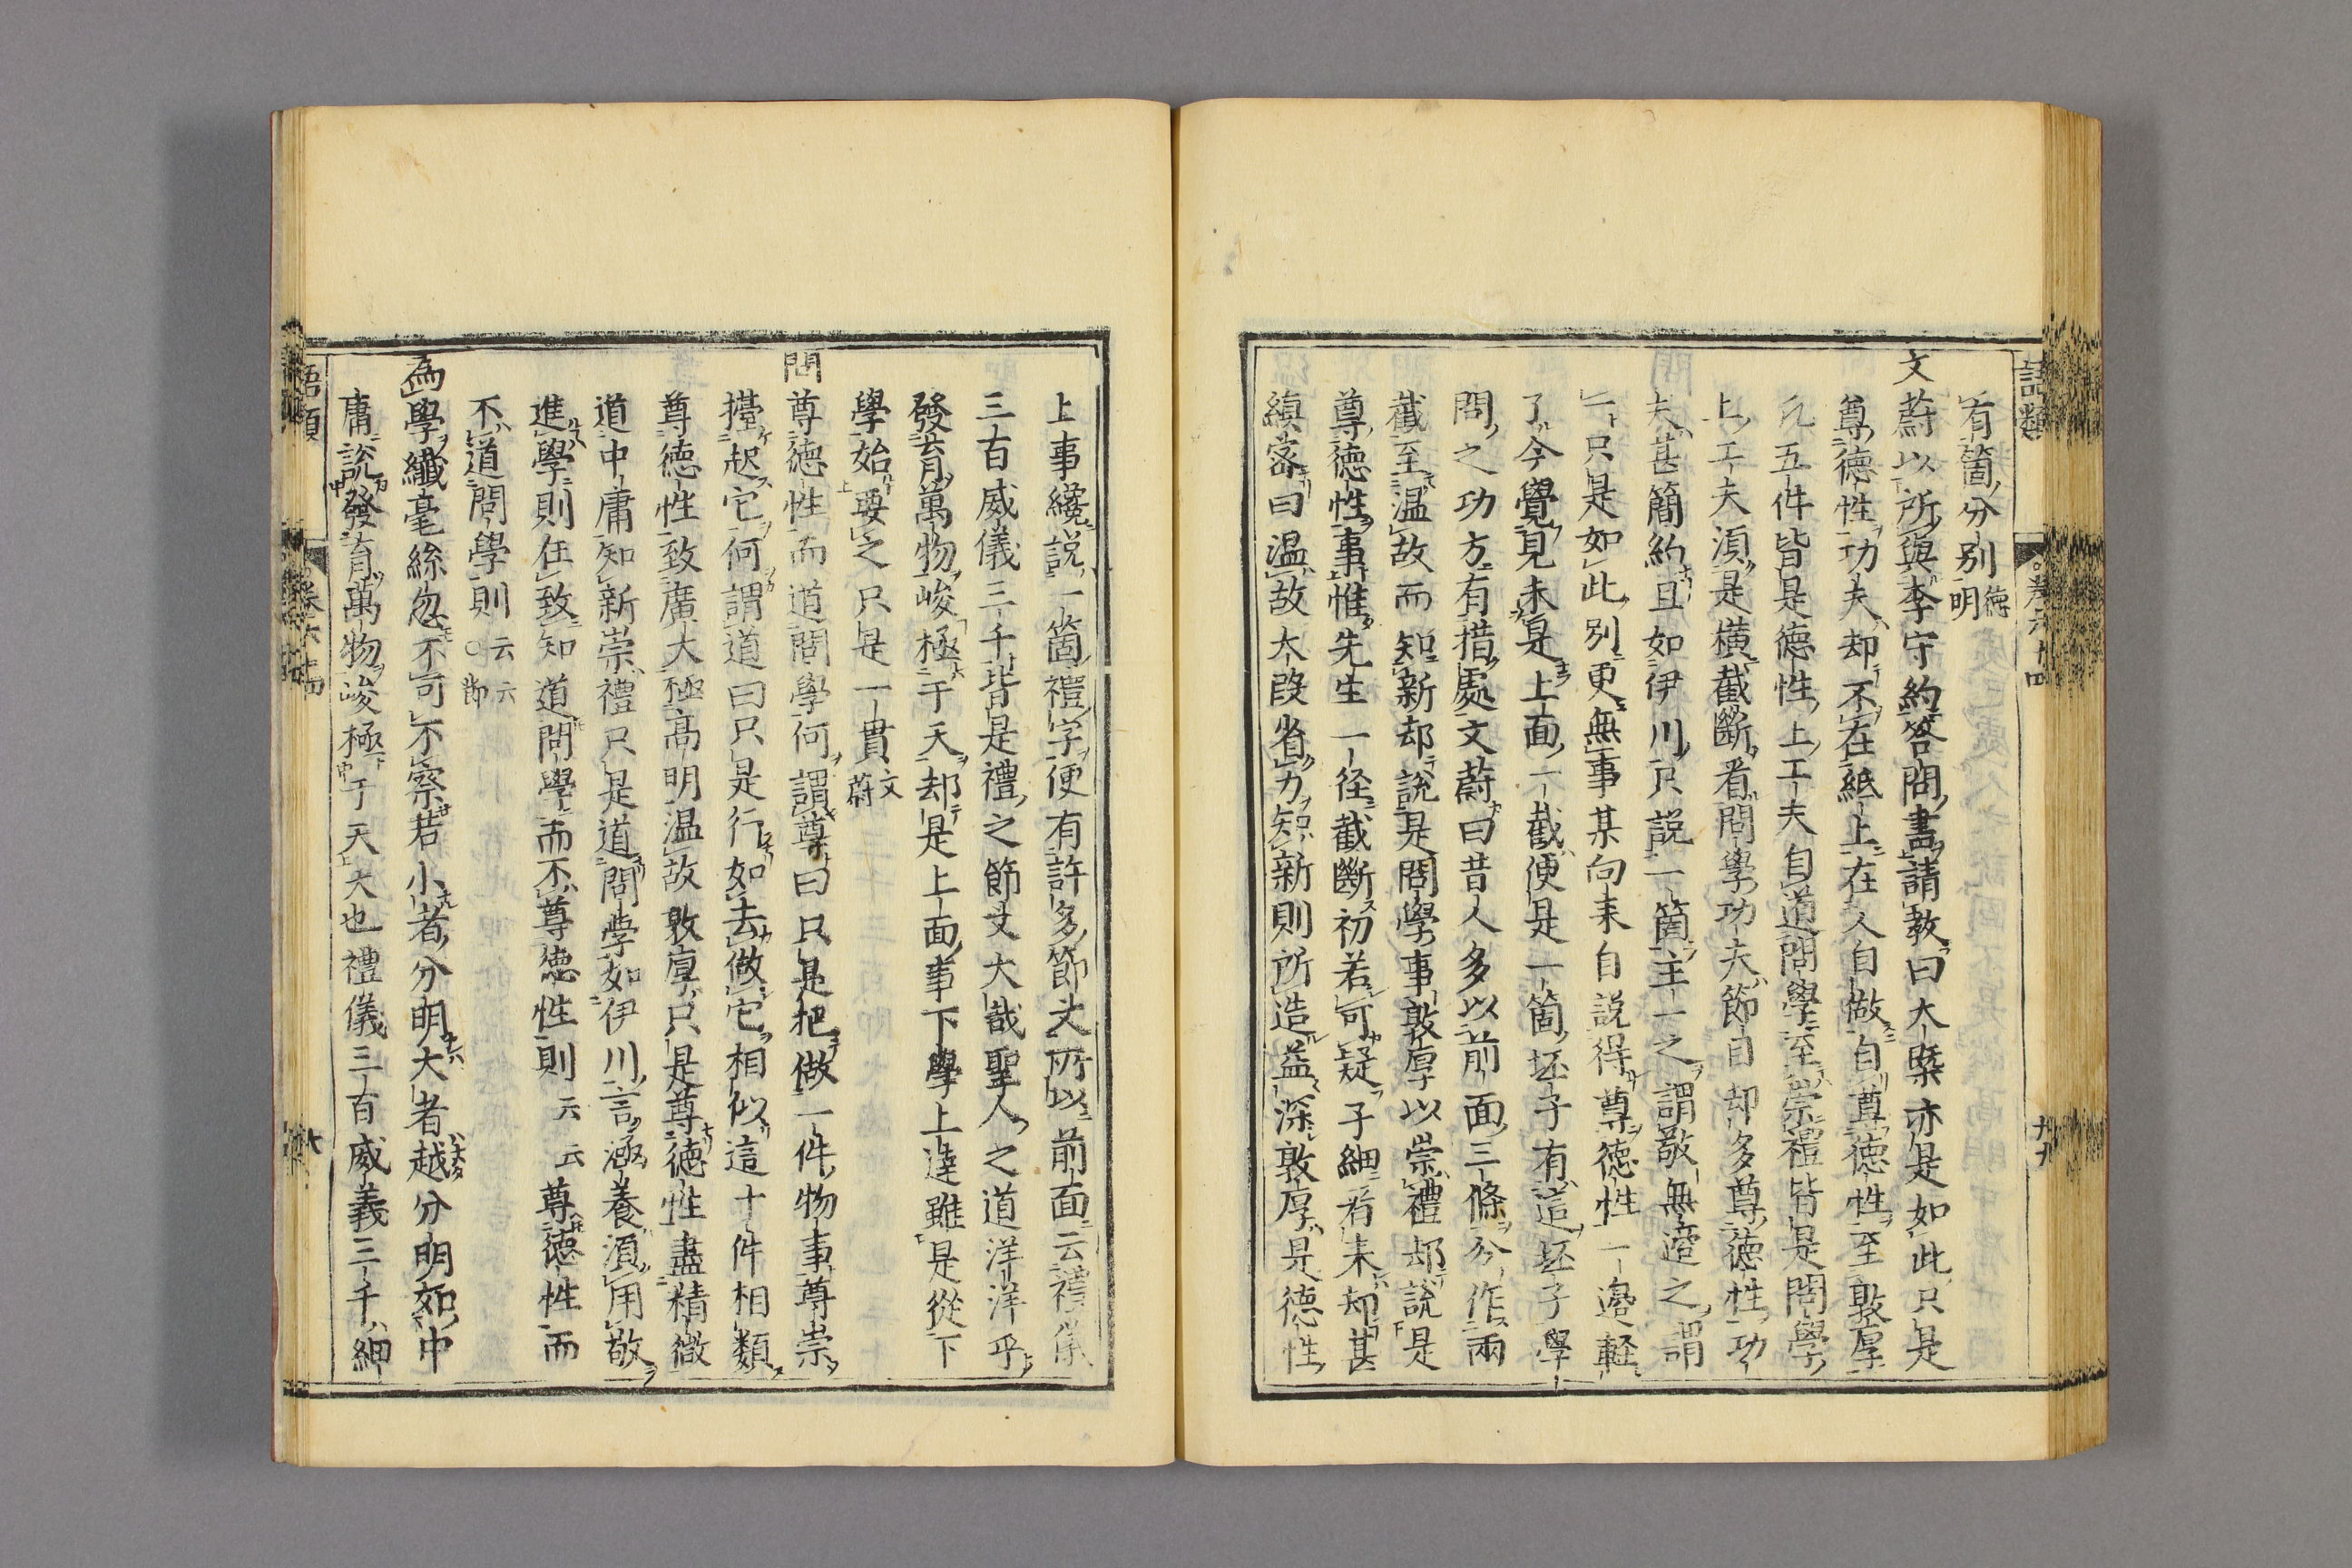 語類
卷六十四
有箇分別明德
文蔚以所與李守約答問書請教曰大槩亦是如此只是
尊德性功夫却不在紙上在人自做自尊德性至敦厚
凡五件皆是德性上工夫自道問學至崇禮皆是問學
上工夫須是橫截斷看問學功夫節目却多尊德性功
夫甚簡約且如伊川只說一箇主一之謂敬無適之謂
一只是如此別更無事某向来自說得尊德性一邊輕
了今覺見未是上面一截便是一箇坯子有這坯子學
問之功方有措處文蔚曰昔人多以前面三條分作兩
截至温故而知新却說是問學事敦厚以崇禮却說是
尊德性事惟先生一径截斷初若可疑子細看来却甚
縝密曰温故大段省力知新則所造益深敦厚是德性
上事纔說一箇禮字便有許多節文所以前面云禮儀
三百威儀三千皆是禮之節文大哉聖人之道洋洋乎
發育萬物峻極于天却是上面事下學上達雖是從下
學始要之只是一貫文蔚
問尊德性而道問學何謂尊曰只是把做一件物事尊崇
擡起它何謂道曰只是行如去做它相似這十件相類
尊德性致廣大極高明温故敦厚只是尊德性盡精微
道中庸知新崇禮只是道問學如伊川言涵養須用敬
進學則在致知道問學而不尊德性則云云尊德性而
不道問學則云云〇節
為學纖毫絲忽不可不察若小者分明大者越分明如中
庸說發育萬物峻極于天大也禮儀三百威義三千細
語類
卷六十四